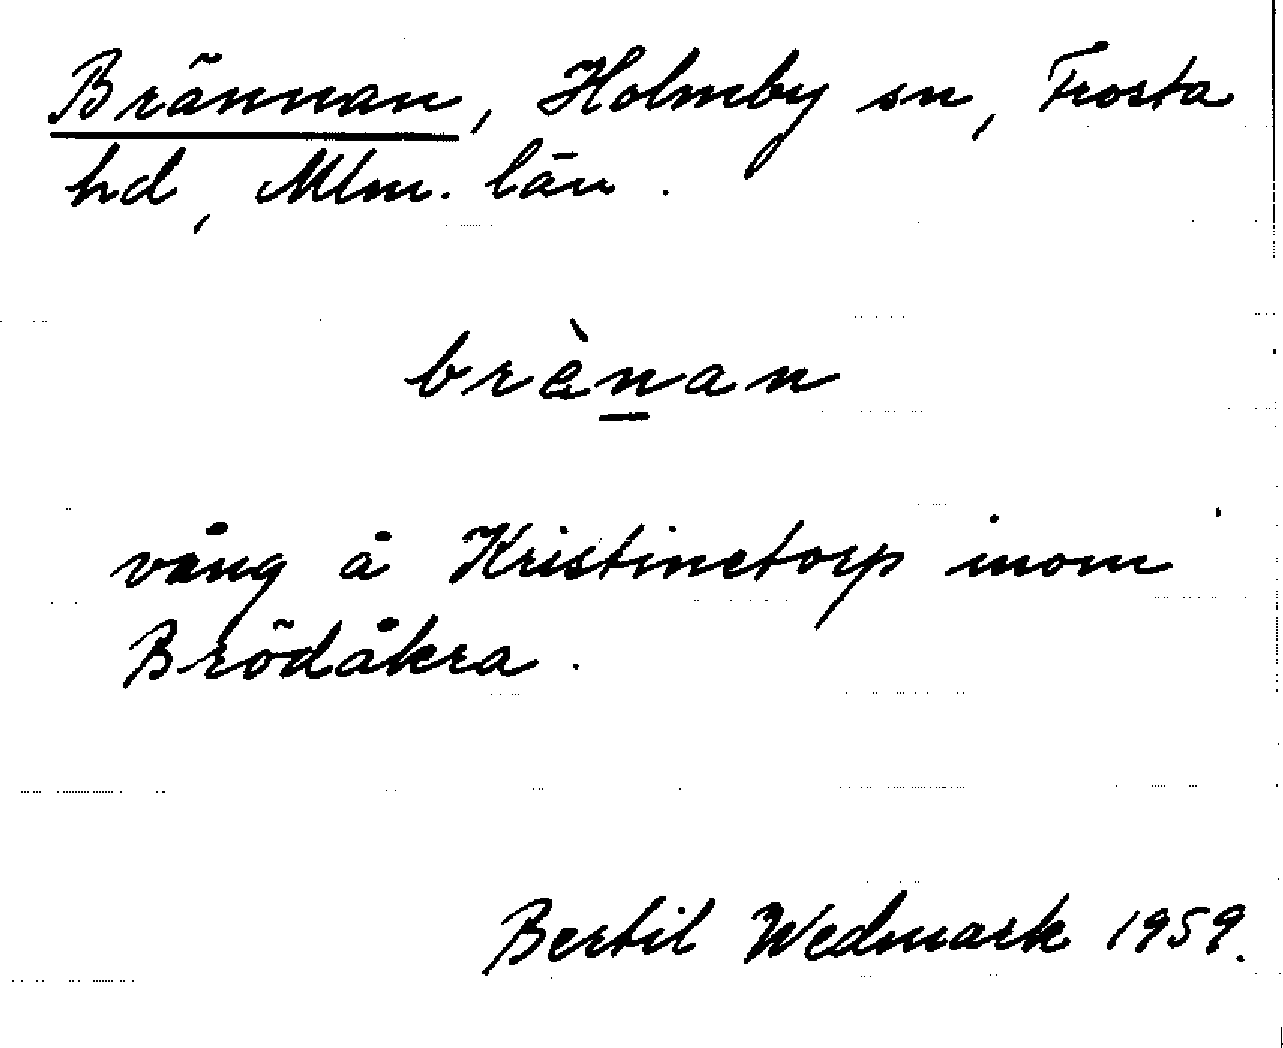 Brännan, Holmby sn, Frosta
hd, Mlm. län.
brànan
vång å Kristinetorp inom
Brödåkra.
Bertil Wedmark 1959.